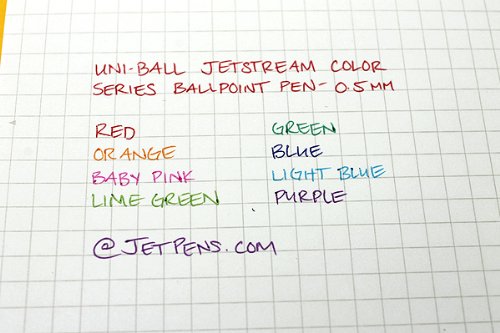 UNI-BALL JETSTREAM COLOR
SERIES BALLPOINT PEN- 0.5MM
RED
ORANGE
BABY PINK
LIME GREEN
GREEN
BLUE
LIGHT BLUE
PURPLE
@JETPENS.COM